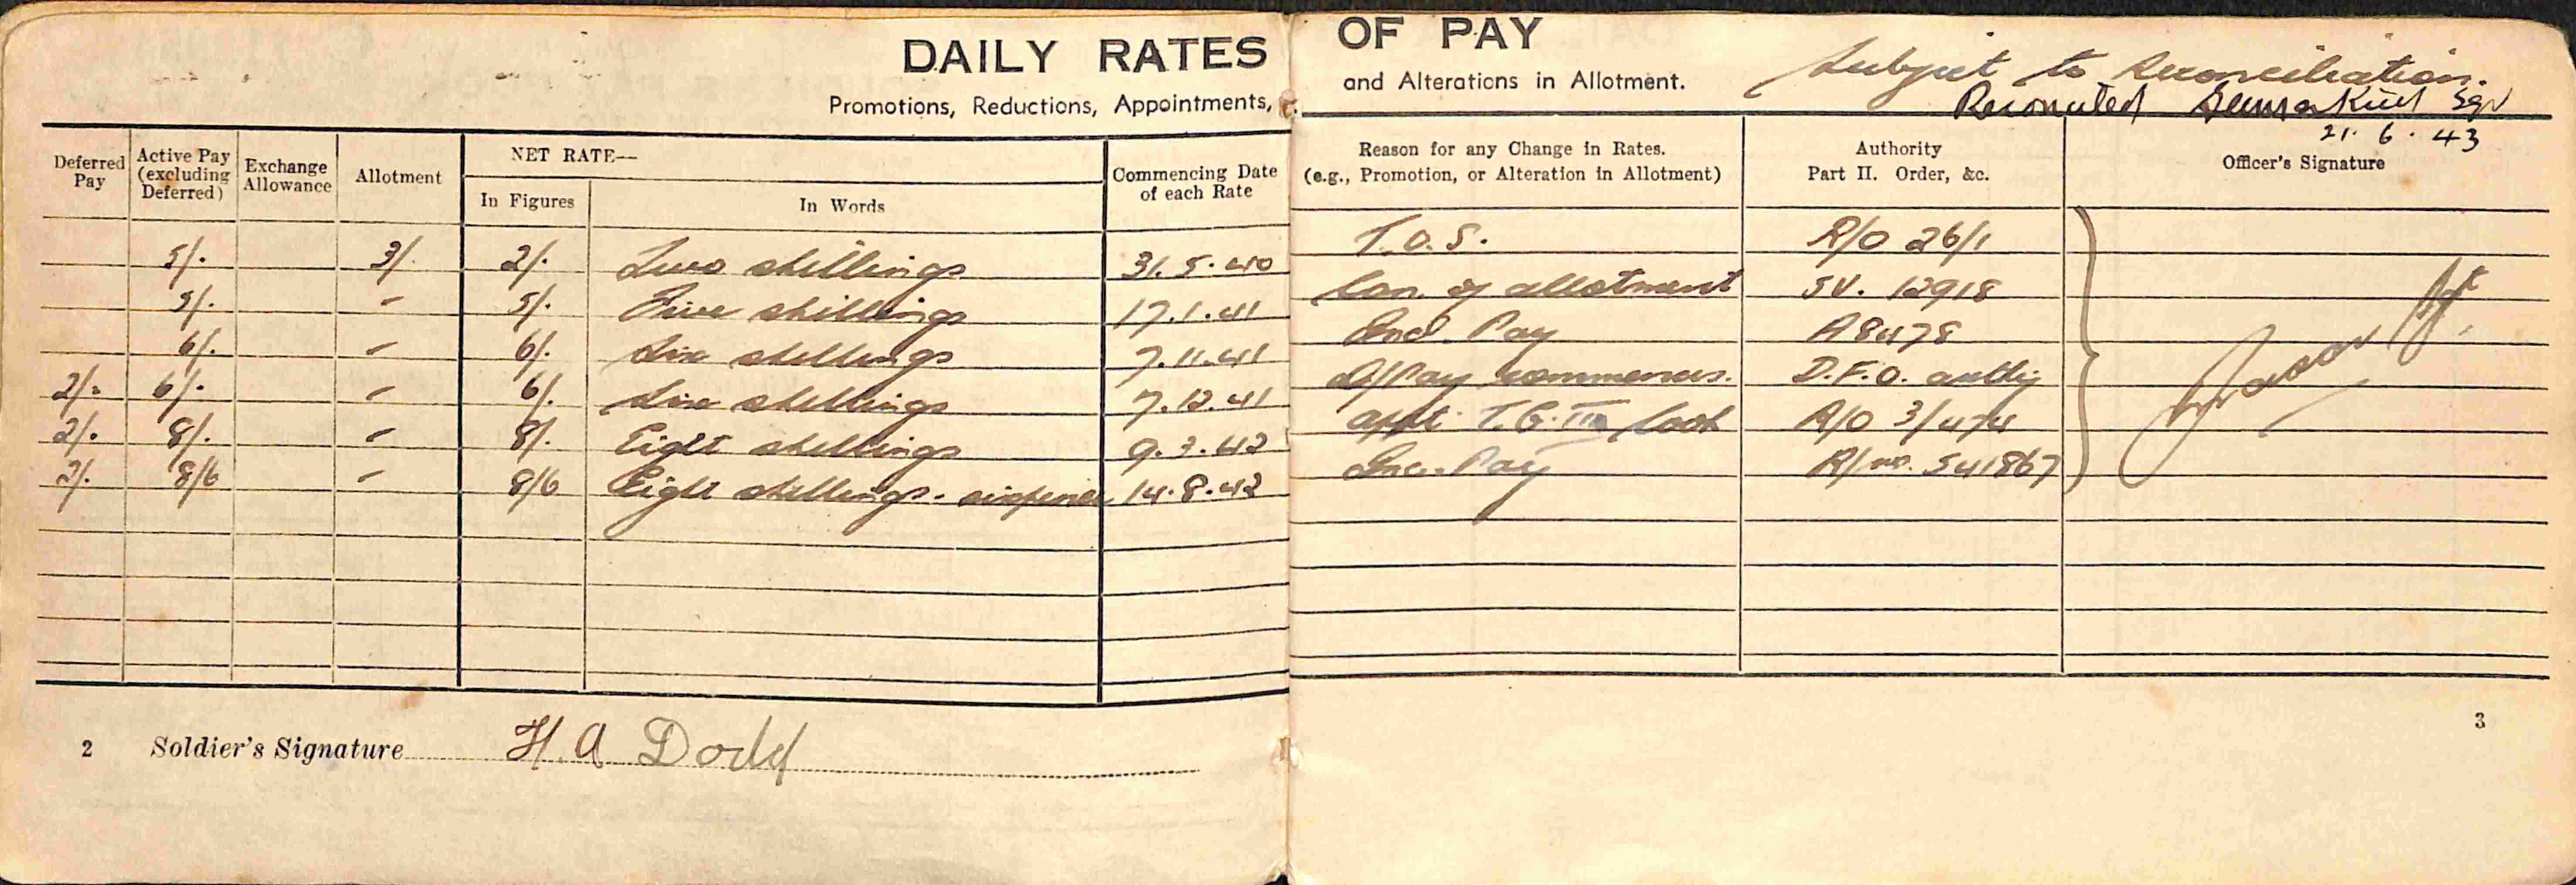 DAILY RATES OF PAY
Promotions, Reductions, Appointments, and Alterations in Allotment.
Subject to Reconciliation.
Reconciled
21. 6. 43
Deferred Pay
Active Pay (excluding Deferred)
Exchange Allowance
Allotment
NET RATE—
In Figures
In Words
Commencing Date of each Rate
Reason for any Change in Rates. (e.g., Promotion, or Alteration in Allotment)
Authority Part II. Order, &c.
Officer's Signature
5/. 3/. 2/. Two shillings 31.5.40 T.O.S. R/O 26/1
5/. - 5/. Five shillings 17.1.41 Can. of allotment SV. 12918
6/. - 6/. Six shillings 7.11.41 Pay A8478
2/. 6/. - 6/. Six shillings 7.12.41 D/Pay commences. D.F.O.
2/. 8/. - 8/. Eight shillings 9.3.42 appt. T.G.III Cook R/O 3/474
2/. 8/6 - 8/6 Eight shillings. sixpence 14.8.42 Inc. Pay 541867
2 Soldier's Signature H.A Dodd
3